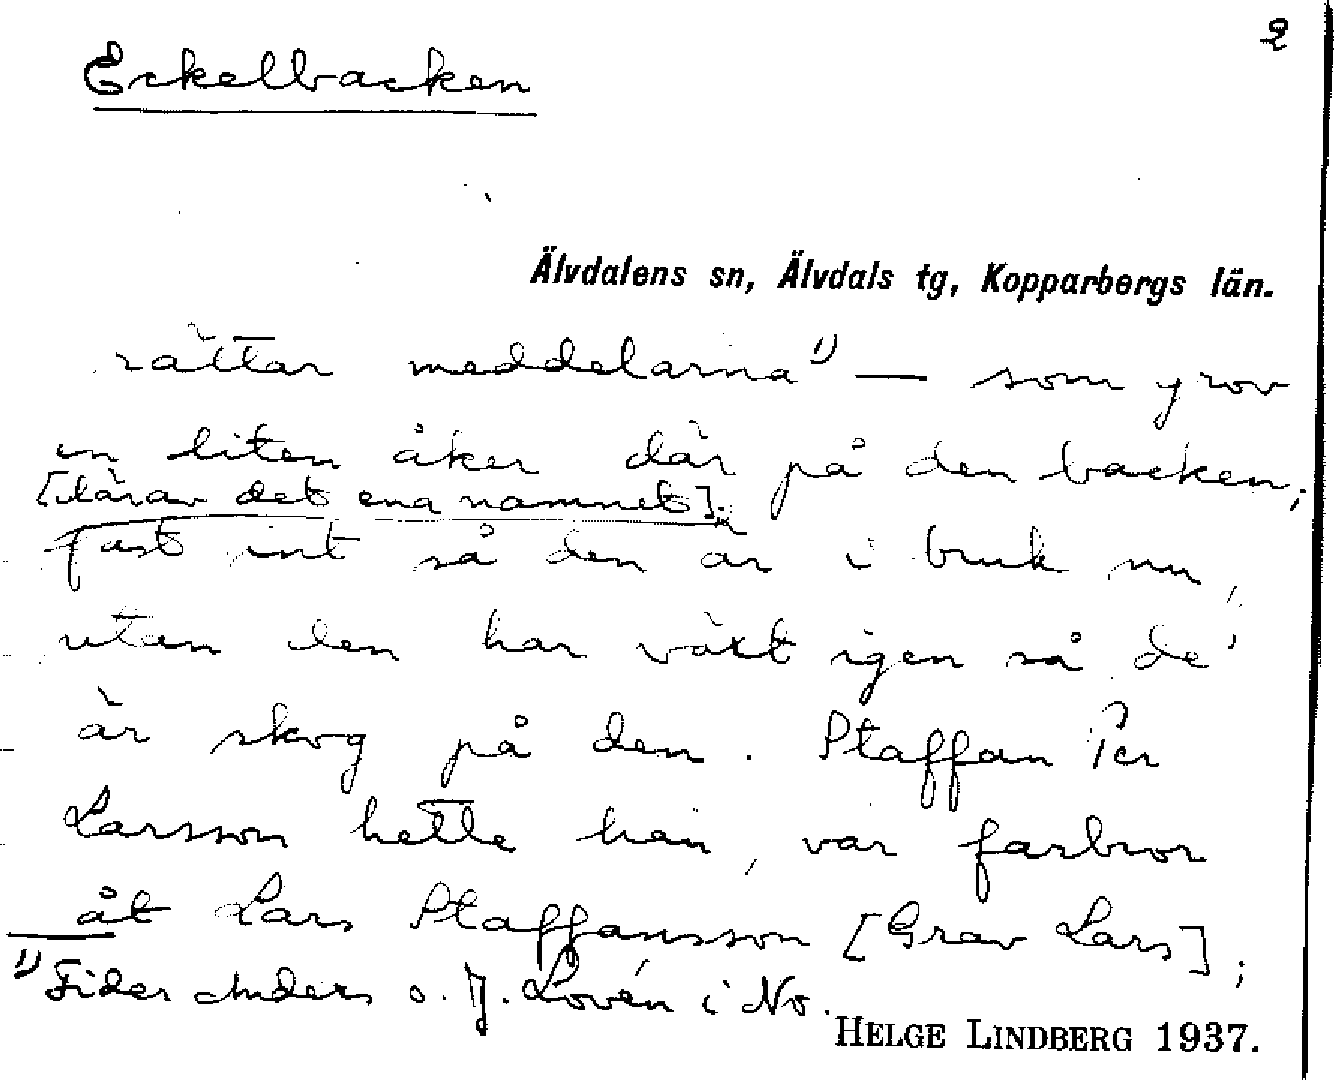 2
Eckelbacken
Älvdalens sn, Älvdals tg, Kopparbergs län.
rättar meddelarna 1) — som grov
en liten åker där på den backen;
[därav det ena namnet].
fast int så den är i bruk nu,
utan den har växt igen så de'
är skog på den. Staffan Per
Larsson hette han, var farbror
åt Lars Staffansson [Grav Lars];
1) Fider Anders o. J. Lovén i No.
HELGE LINDBERG 1937.